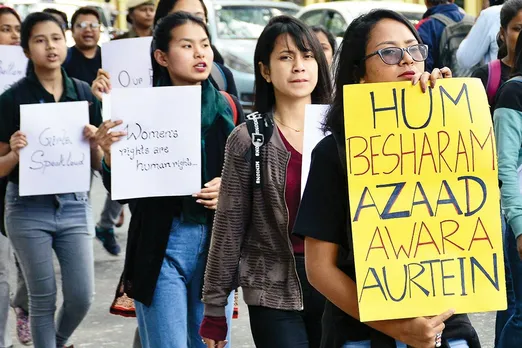 Our
Girls
Speak Loud
Women's
rights are
human rights...
HUM
BESHARAM
AZAAD
AWARA
AURTEIN